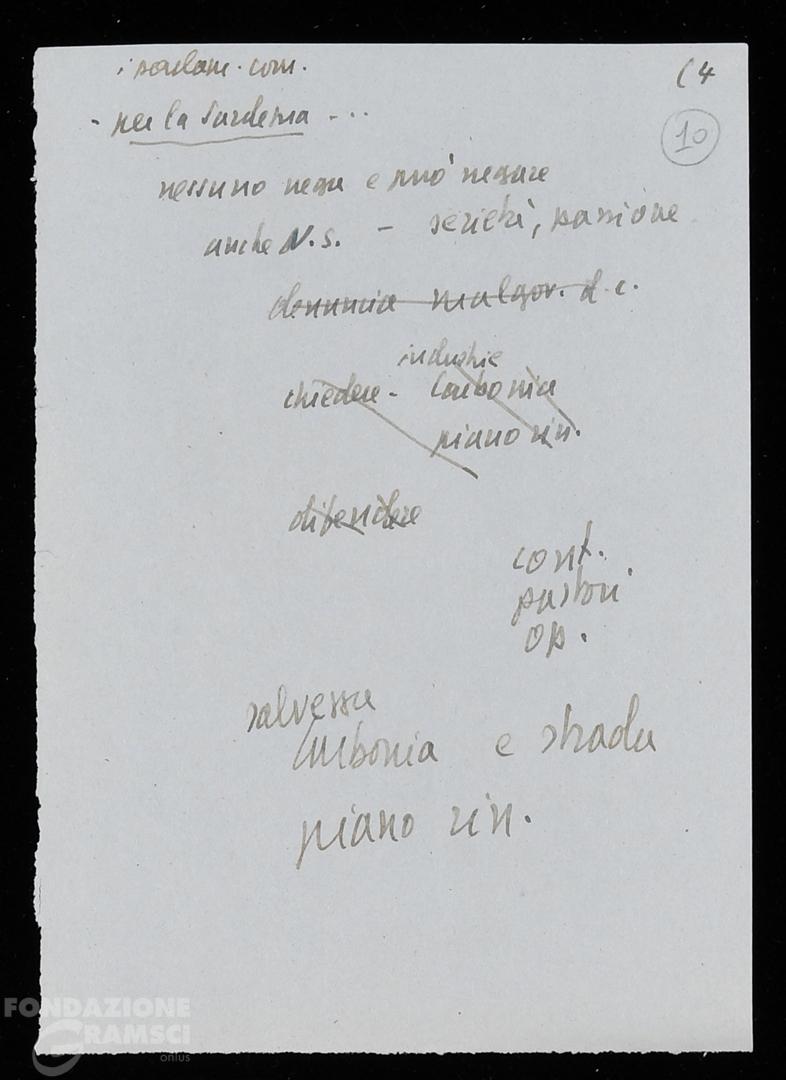 i parlam. com. (4
- per la Sardegna - ... 10
nessuno nega e può negare
anche N.S. - serietà, passione
denuncia malgov. d.c.
industrie
chiedere - Carbonia
piano rin.
difendere
cont.
pastori
op.
salvezza
Carbonia e strada
piano rin.
FONDAZIONE
GRAMSCI
onlus